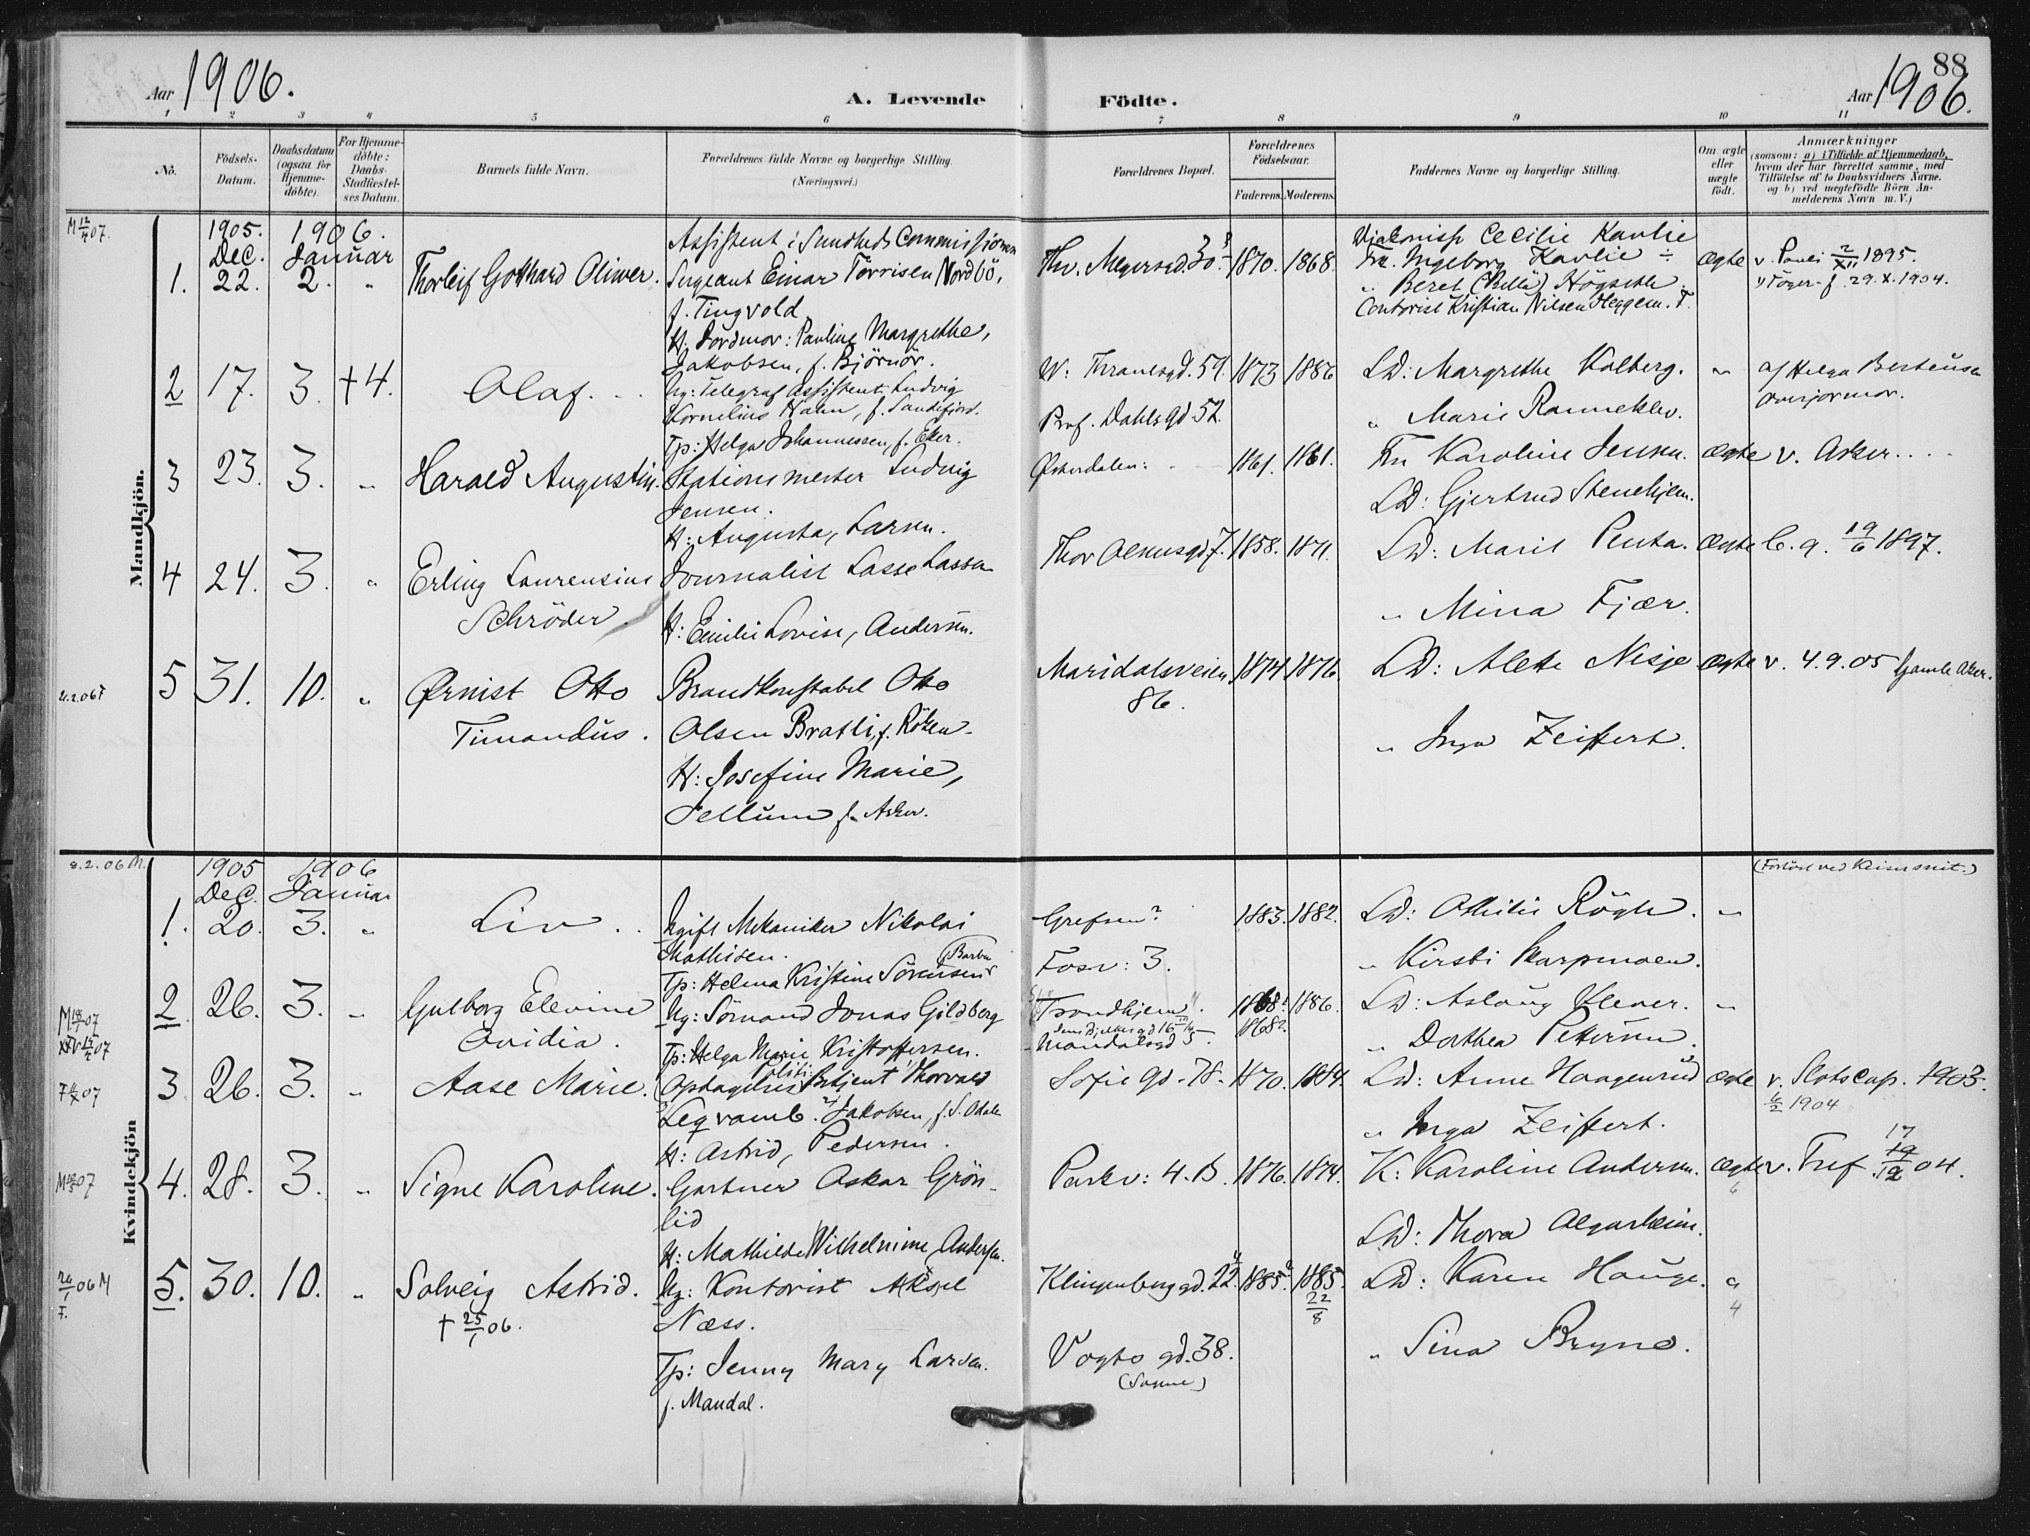 88
Aar 1906.
A. Levende Födte.
Aar 1906.
1 2 3 4 5 6 7 8 9 10 11
No.
Födsels-Datum.
Daabsdatum (ogsaa for Hjemme-döbte).
For Hjemme-döbte: Daabs-Stadfæstel-ses Datum.
Barnets fulde Navn.
Forældrenes fulde Navne og borgerlige Stilling.
(Næringsvei.)
Forældrenes Bopæl.
Forældrenes Födselsaar.
Faderens. Moderens.
Faddernes Navne og borgerlige Stilling.
Om ægte eller uægte födt.
Anmærkninger
(saasom: a) i Tilfælde af Hjemmedaab,
hvem der har forrettet samme, med
Tilföielse af to Daabsvidners Navne.
og b) ved uægtefödte Börn An-
melderens Navn m. V.)
Mandkjön.
1905. 1906.
Dec. Januar
1. 22. 2. " Thorleif Gotthard Oliver.
Assistent i Sundheds Commissionen
Sergeant Einar Törrisen Nordbö,
f. Tingvold
H. Jordmor: Pauline Margrethe,
Jakobsen, f. Björnör.
Thv. Meyersgd. 30. 1870. 1868.
Diakonisse Cecilie Kavlie
Frk. Ingeborg Kavlie
" Beret (Bella) Högseth
Contorist Kristian Nilsen Heggem.
ægte v. Pauli 2/XII 1895.
f. 29.X.1904.
2 17. 3. +4. Olaf.
Ug: Telegraf Assistent Ludvig
Kornelius Hahn, f. Sandefjord.
Tp: Helga Johannessen, f. Eker.
W. Thranesgd. 59. 1873 1886
Prof. Dahlsgd 52.
LD: Margrethe Kolberg.
" Marie Ranneklev.
" af Helga Bertensen
oversjormor.
3 23. 3. " Harald Augustin.
Stationsmester Ludvig
Jensen.
H: Augusta, Larsen.
Österdalen: 1861. 1861.
Fru Karoline Jensen.
LD: Gjertrud Stenehjem.
ægte v. Asker.
4 24. 3. " Erling Laurensius
Schröder.
Journalist Lasse Lassen
H: Emilie Lovise, Andersen.
Thor Olsensgd 7. 1858. 1871.
LD: Marit Penta.
" Mina Fjær.
ægte C. g. 19/6 1897.
21.2.06 F
5 31. 10. " Ørnist Otto
Timandus.
Brandkonstabel Otto
Olsen Bratli, f. Röken
H: Josefine Marie,
Jellum f. Asker.
Maridalsveien 86. 1874 1876.
LD: Alette Nisje
" Inga Zeiffert.
ægte v. 4.9.05 Gamle Aker.
Kvindekjön
8.2.06 M.
1905 1906
Dec. Januar
(Forlöst ved Keisersnit.)
1. 20. 3. " Liv
Ugift Mekaniker Nikolai
Mathisen.
Tp: Helma Kristine Sörensen (Barbu
Grefsen? 1883. 1882.
Fosv: 3.
LD: Othilie Rögh.
" Kirsti Karpmoen.
"
2 26. 3. " Gulborg Elevine
Ovidia.
Ug: Sömand Jonas Gildberg
Tp: Helga Marie Kristoffersen.
"Trondhjem" 1868! 1886.
1868?
Mandalsgd 5.
LD: Aslaug Klever.
" Dorthea Petersen.
"
3 26. 3. " Aase Marie.
Opdagelses Politi Betjent Thorvald
Legvamb. Jakobsen, f. S. Odalen
H: Astrid, Pedersen.
Sofie gd. 78. 1870. 1884.
LD: Anne Haagensrud
" Inga Zeiffert.
ægte v. Slotscap. 1903.
6/2 1904
4. 28. 3. " Signe Karoline.
Gartner Oskar Grön-
lid
H: Mathilde Wilhelmine Andersen.
Parkv: 4. B. 1876. 1874.
K: Karoline Andersen.
LD: Thora Algarheim.
ægte v. Tref. 17/12 04.
5. 30. 10. " Solveig Astrid.
+ 25/1 06.
Ug: Kontorist Aksel
Næss.
Tp: Jenny Mary Larsen.
f. Mandal.
Klingenberg gd. 22. 1885. 1885.
22/8
Vogts gd. 38.
(Samme)
LD: Karen Hauge.
" Sina Bryne.
"
4